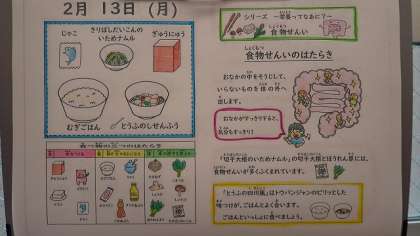 2月 13日 (月)
じゃこ
きりぼしだいこんの
いためナムル
ぎゅうにゅう
むぎごはん
とうふのしせんふう
食べ物の三つのはたらき
シリーズ ～栄養ってなあに？～
食物せんい
しょくもつ
食物せんいのはたらき
おなかの中をそうじして、
いらないものを体の外へ
出します。
おなかがすっきりすると、
気分もすっきり！
「切干大根のいためナムル」の切干大根とほうれん草には、
食物せんいが多くふくまれています。
「とうふの四川風」はトウバンジャンのピリッとした
味つけが、ごはんとよく合います。
ごはんといっしょに食べましょう。